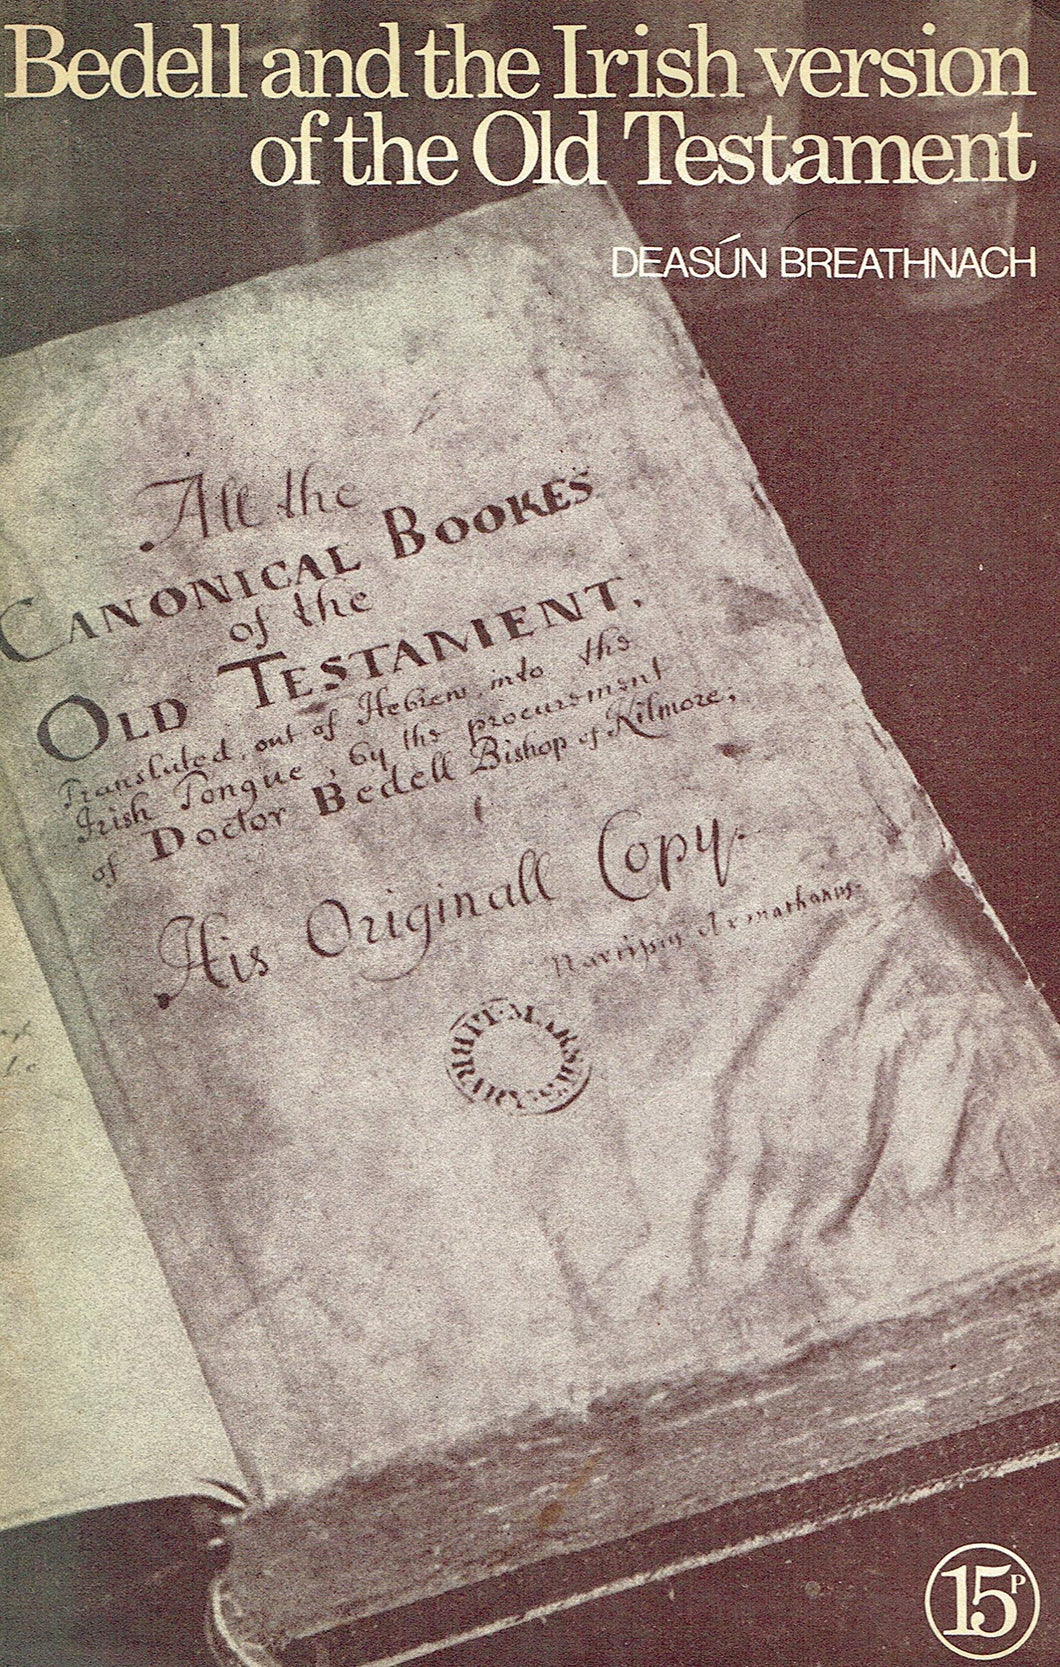 Bedell and the Irish version
of the Old Testament
DEASÚN BREATHNACH
All the
CANONICAL BOOKES
of the
OLD TESTAMENT,
Translated, out of Hebrew, into the
Irish Tongue, by the procurement
of Doctor Bedell Bishop of Kilmore;
His Originall Copy.
Narcissus Armachanus.
15P